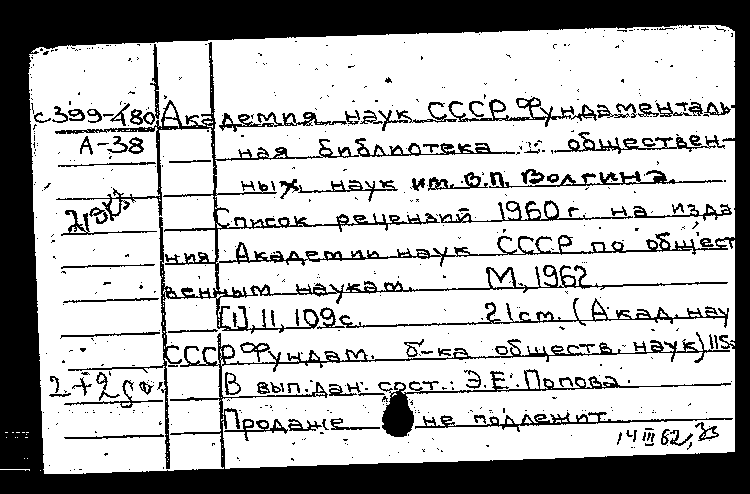 с399-480 Академия наук СССР. Фундаменталь-
А-38 ная библиотека обществен-
ных наук им. В.П. Волгина.
Список рецензий 1960г. на изда
ния Академии наук СССР по общест
венным наукам. М., 1962.
[1], II, 109с. 21см. (Акад. нау
СССР. Фундам. б-ка обществ. наук) 115
2+2 В вып. дан. сост.: Э.Е. Попова.
Продаже не подлежит.
14 III 62